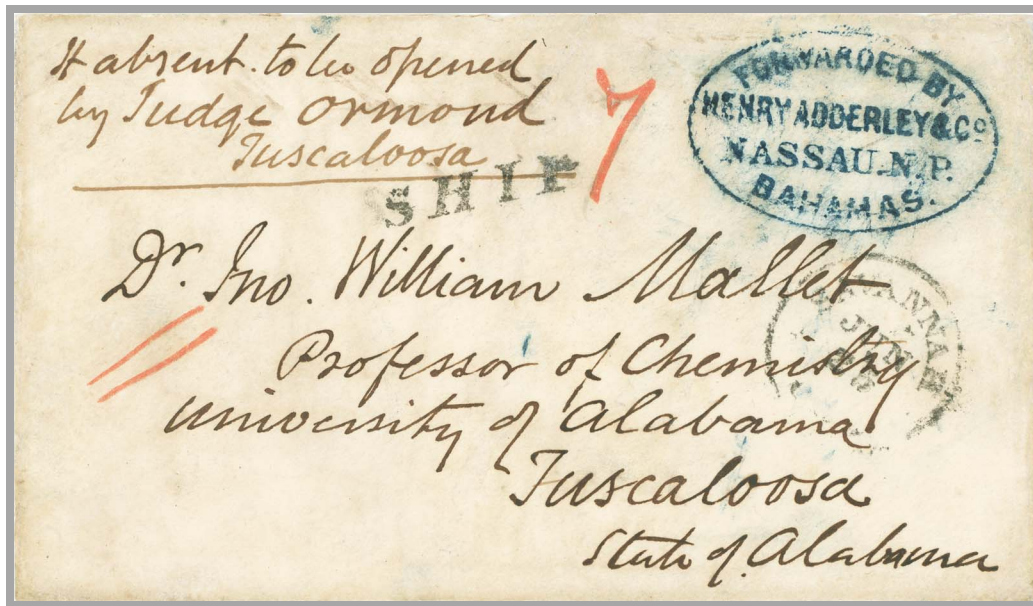 If absent to be opened
by Judge Ormond
Tuscaloosa
SHIP
7
FORWARDED BY
HENRY ADDERLEY & Co
NASSAU. N. P.
BAHAMAS.
Dr. Jno. William Mallet
Professor of Chemistry
University of Alabama
Tuscaloosa
State of Alabama
SAVANNAH